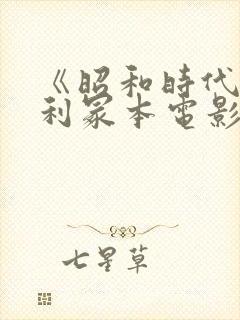 《昭和時代
利冢本電影
七星草